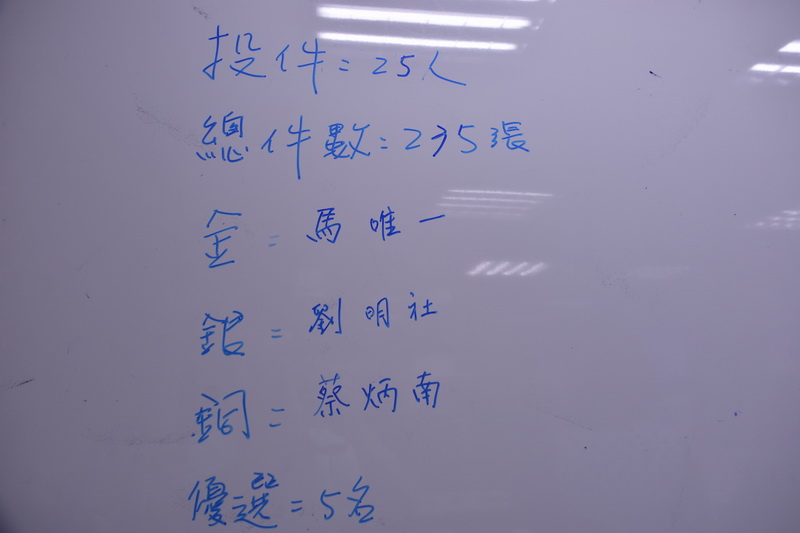 投件=25人
總件數=235張
金=馬唯一
銀=劉明社
銅=蔡炳南
優選=5名